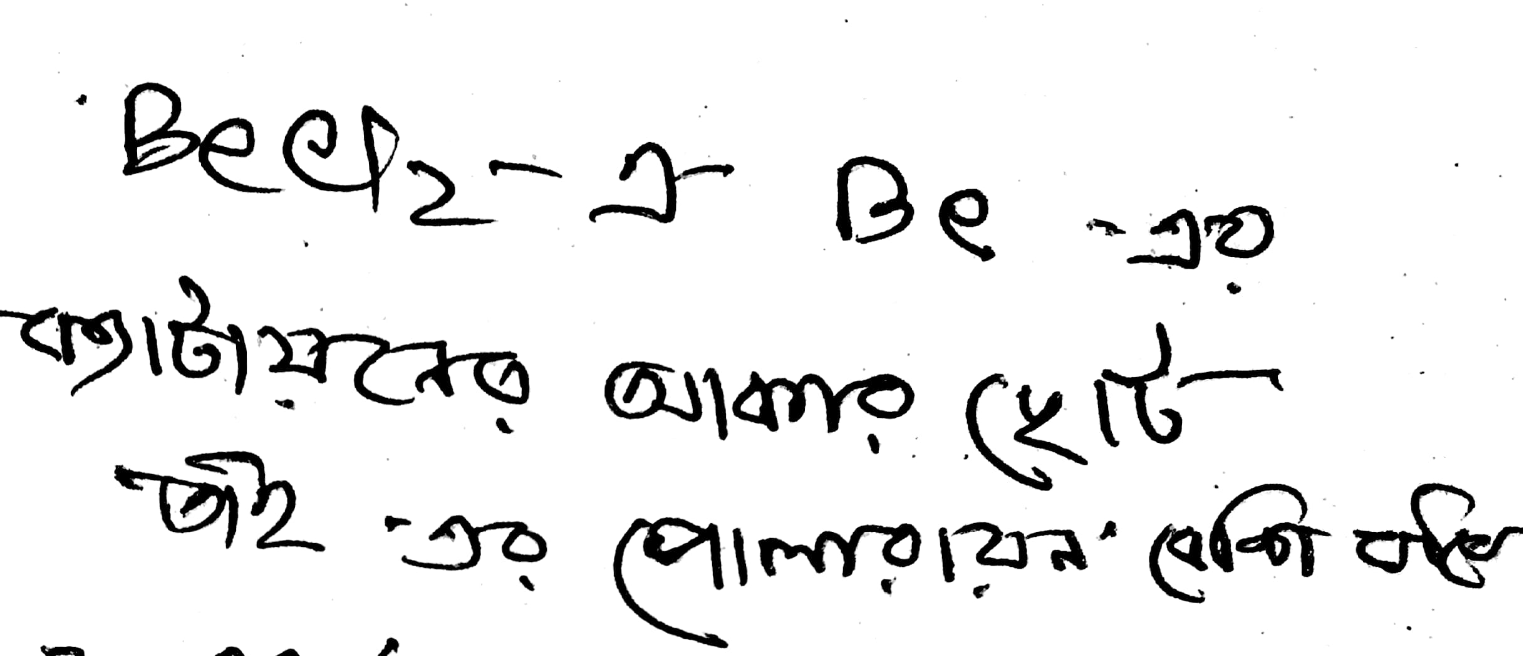 BeCl₂ - এ Be - এর
ক্যাটায়নের আকার ছোট
তাই - এর পোলারায়ন বেশি